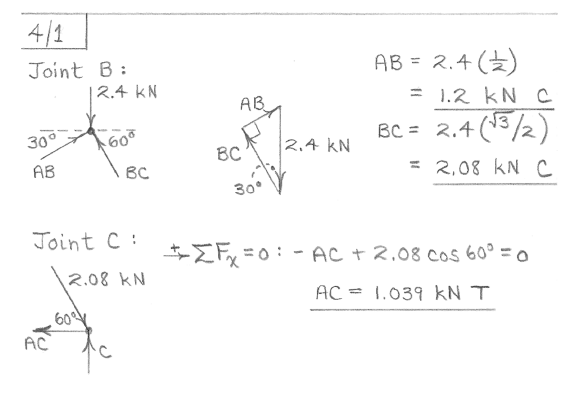 4/1
Joint B :
2.4 kN
30° 60°
AB BC
AB
BC 2.4 kN
30°
AB = 2.4 (1/2)
= 1.2 kN C
BC = 2.4 (√3/2)
= 2.08 kN C
Joint C :
2.08 kN
60°
AC C
→+ ΣFx = 0 : - AC + 2.08 cos 60° = 0
AC = 1.039 kN T